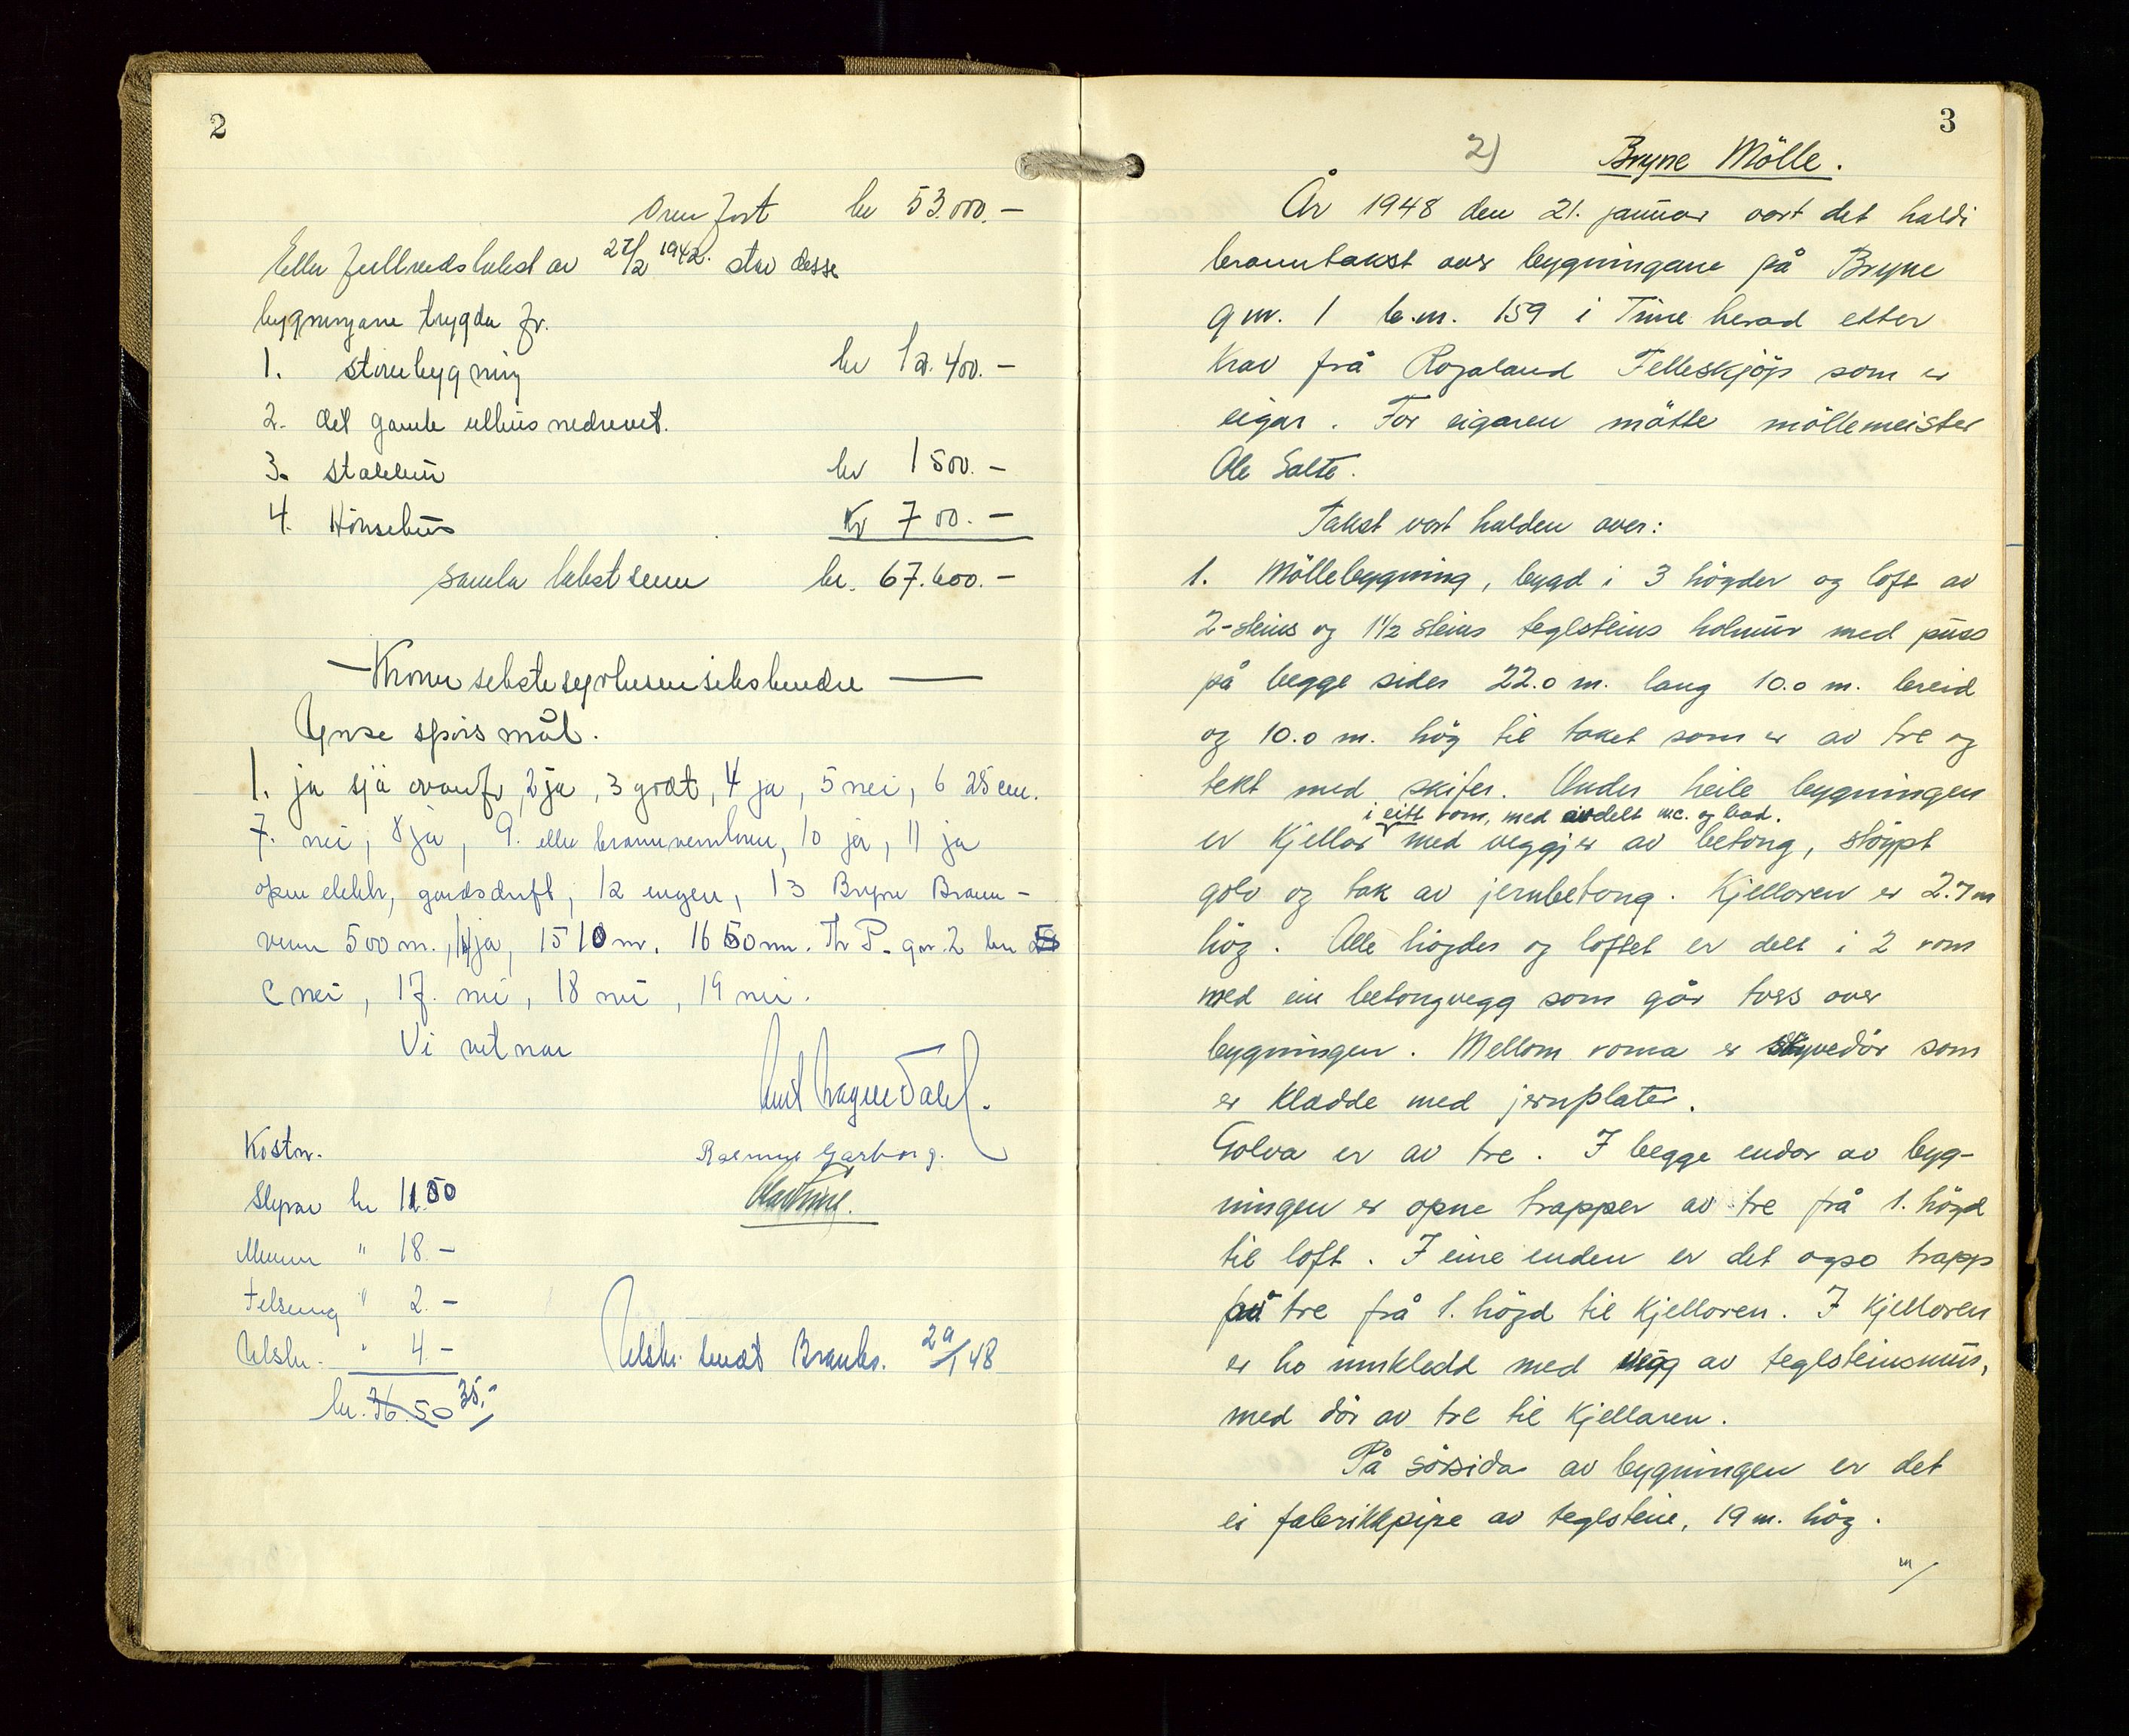 2
Overført kr 53.000.-
Etter fullverdstakst av 27/2 1942. står desse
bygningane trygda for.
1. stovebygning kr 12.400.-
2. det gamle uthus nedrevet.
3. stallen kr 1500.-
4. Hönsehus Kr 700.-
Samla takst sum kr. 67.600.-
— Kroner sekstisyvtusensekshundre —
Ymse spörsmål.
1. ja sjå ovanfor, 2 ja, 3 godt, 4 ja, 5 nei, 6 25 cm.
7. nei, 8 ja, 9. etter 10 ja, 11 ja
open elektr, gardsdrift, 12 ingen, 13 Bryne Brann-
vern 500 m., 14 ja, 15 10 m. 16 50 m. gnr. 2 bnr
C nei, 17. nei, 18 nei, 19 nei.
Vi vitnar
Rasmus Garborg.
Kostn.
Styrar kr 11.50
Menn " 18.-
Telseng " 2.-
Utskr. " 4.-
kr. 36.50 35.-
Utskr. sendt Brannk. 29/1 48
3
2) Bryne Mölle.
År 1948 den 21. januar vart det haldi
branntakst over bygningane på Bryne
gnr. 1 b.nr. 159 i Time herad etter
krav frå Rogaland Felleskjöp som er
eigar. For eigaren møtte möllemeister
Ole Salte.
Takst vart halden over:
1. Möllebygning, bygd i 3 högder og loft av
2-steins og 1 1/2 steins teglsteins holmur med puss
på begge sider 22.0 m. lang 10.0 m. breid
og 10.0 m. hög til taket som er av tre og
tekt med skifer. Under heile bygningen
i eitt rom, med avdelt w.c. og bad.
er kjellar med veggjer av betong, stöypt
golv og tak av jernbetong. Kjelloren er 2.7 m
hög. Alle högder og loftet er delt i 2 rom
med ein betongvegg som går tvers over
bygningen. Mellom roma er skyvedör som
er kledde med jernplater.
Golva er av tre. I begge endar av byg-
ningen er opne trapper av tre frå 1. högd
til loft. I eine enden er det også trapp
av tre frå 1. högd til kjelloren. I kjelloren
er ho innkledd med vegg av teglsteinsmur,
med dör av tre til kjellaren.
På sörsida av bygningen er det
ei fabrikkpipe av teglstein, 19 m. hög.